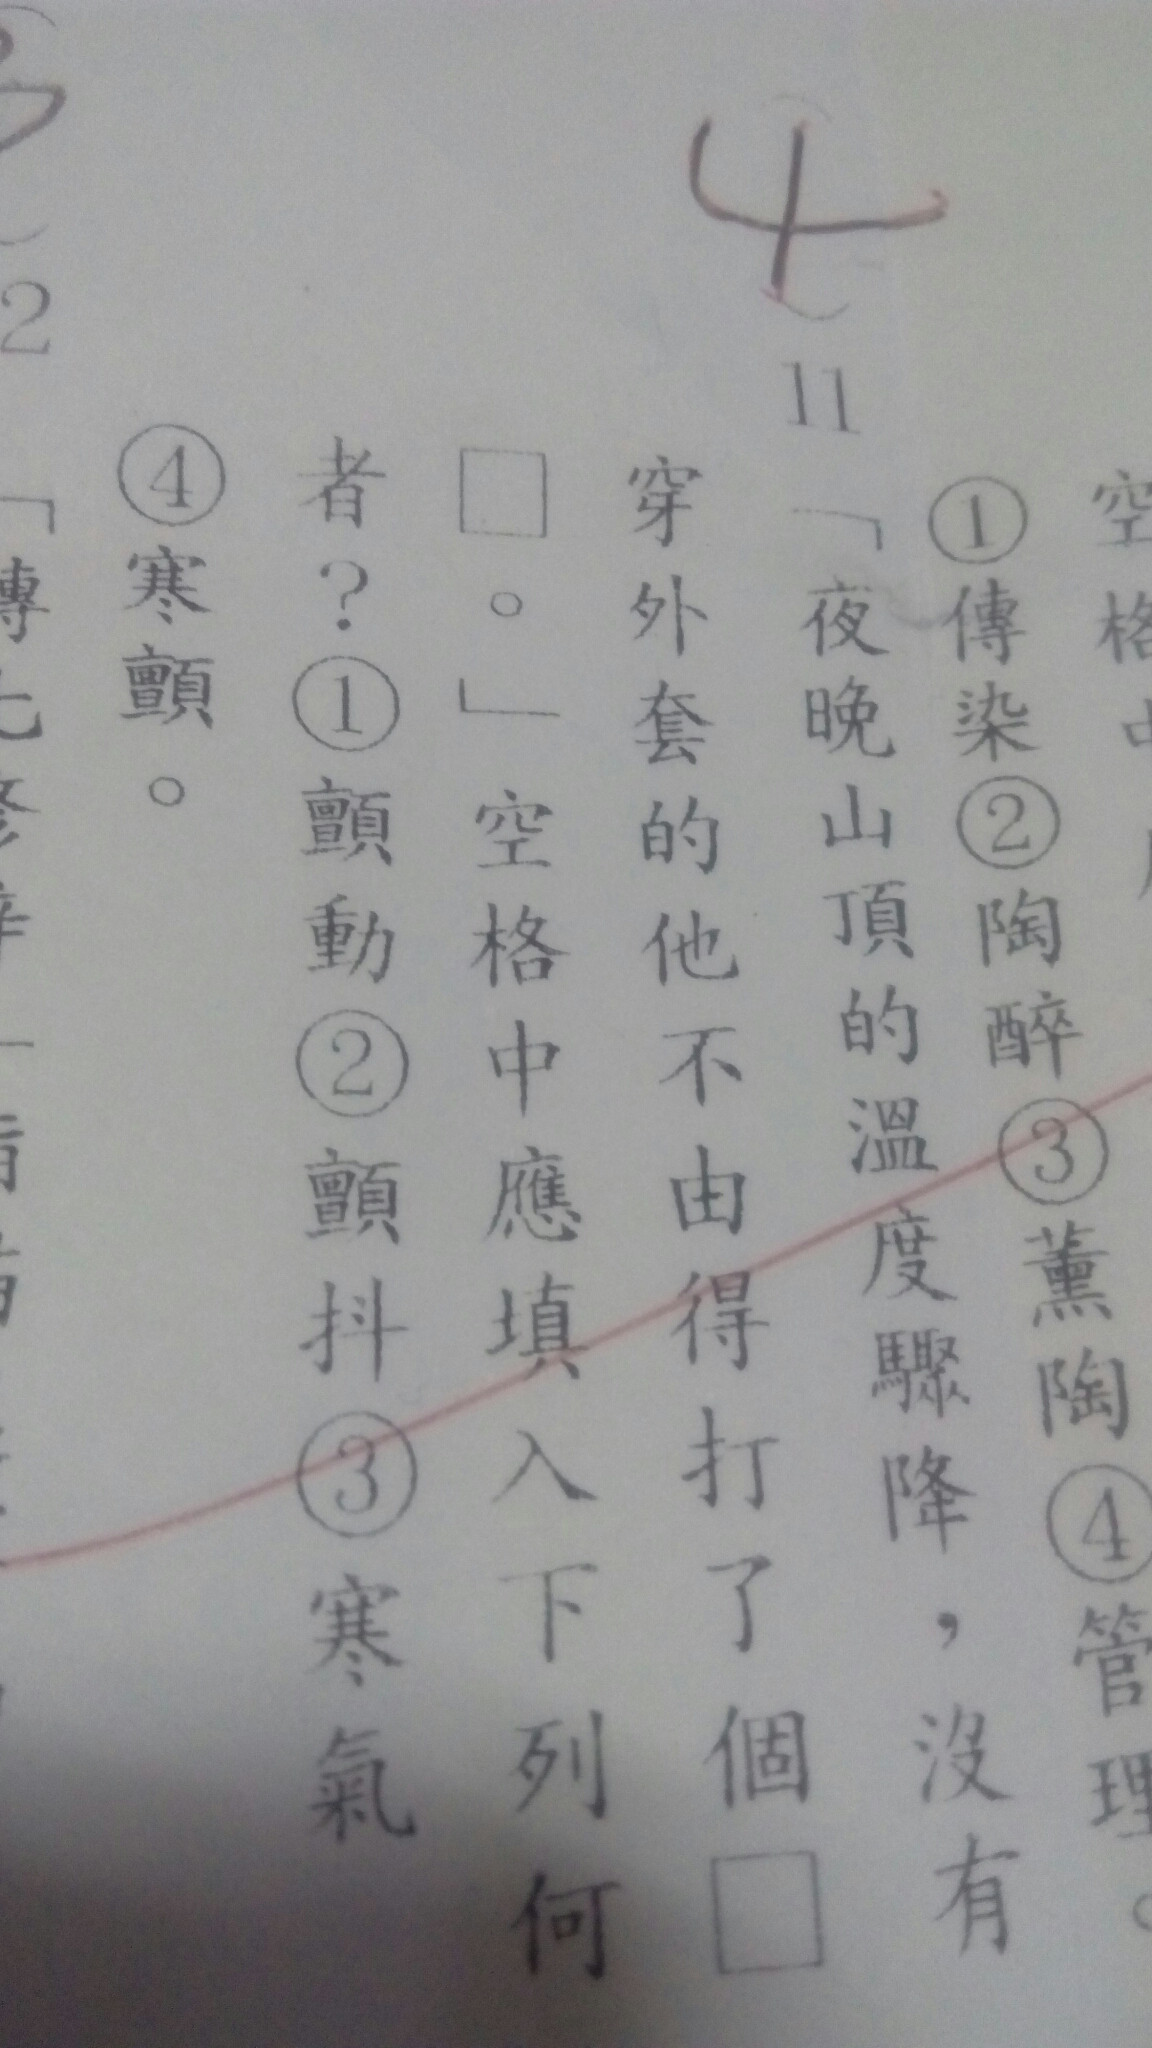 空格
①傳染②陶醉③薰陶④管理。
4
11「夜晚山頂的溫度驟降，沒有
穿外套的他不由得打了個□
□。」空格中應填入下列何
者？①顫動②顫抖③寒氣
④寒顫。
2「